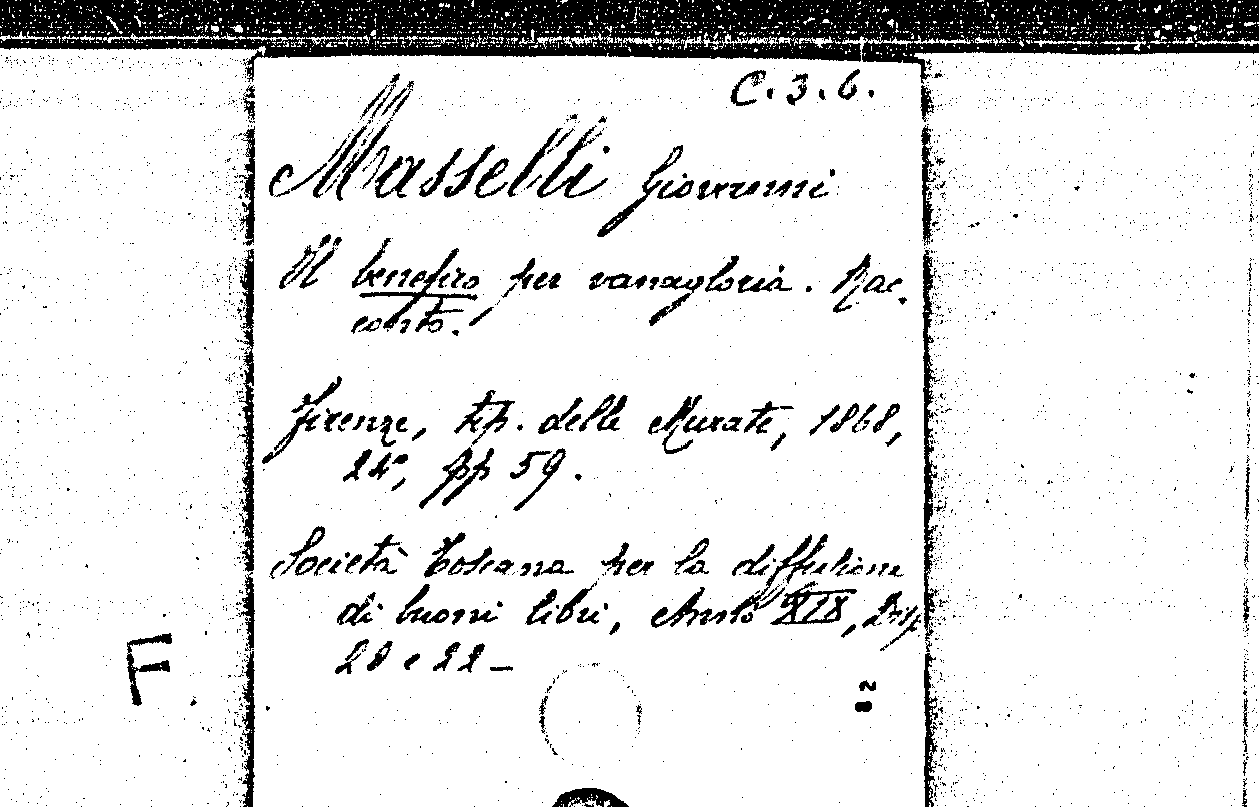 C. 3. 6.
Masselli Giovanni
Il benefizio per vanagloria. Rac-
conto.
Firenze, tip. delle Murate, 1868,
24°, pp 59.
Società Toscana per la diffusione
di buoni libri, Anno XIX, Disp
20 e 22 –
F